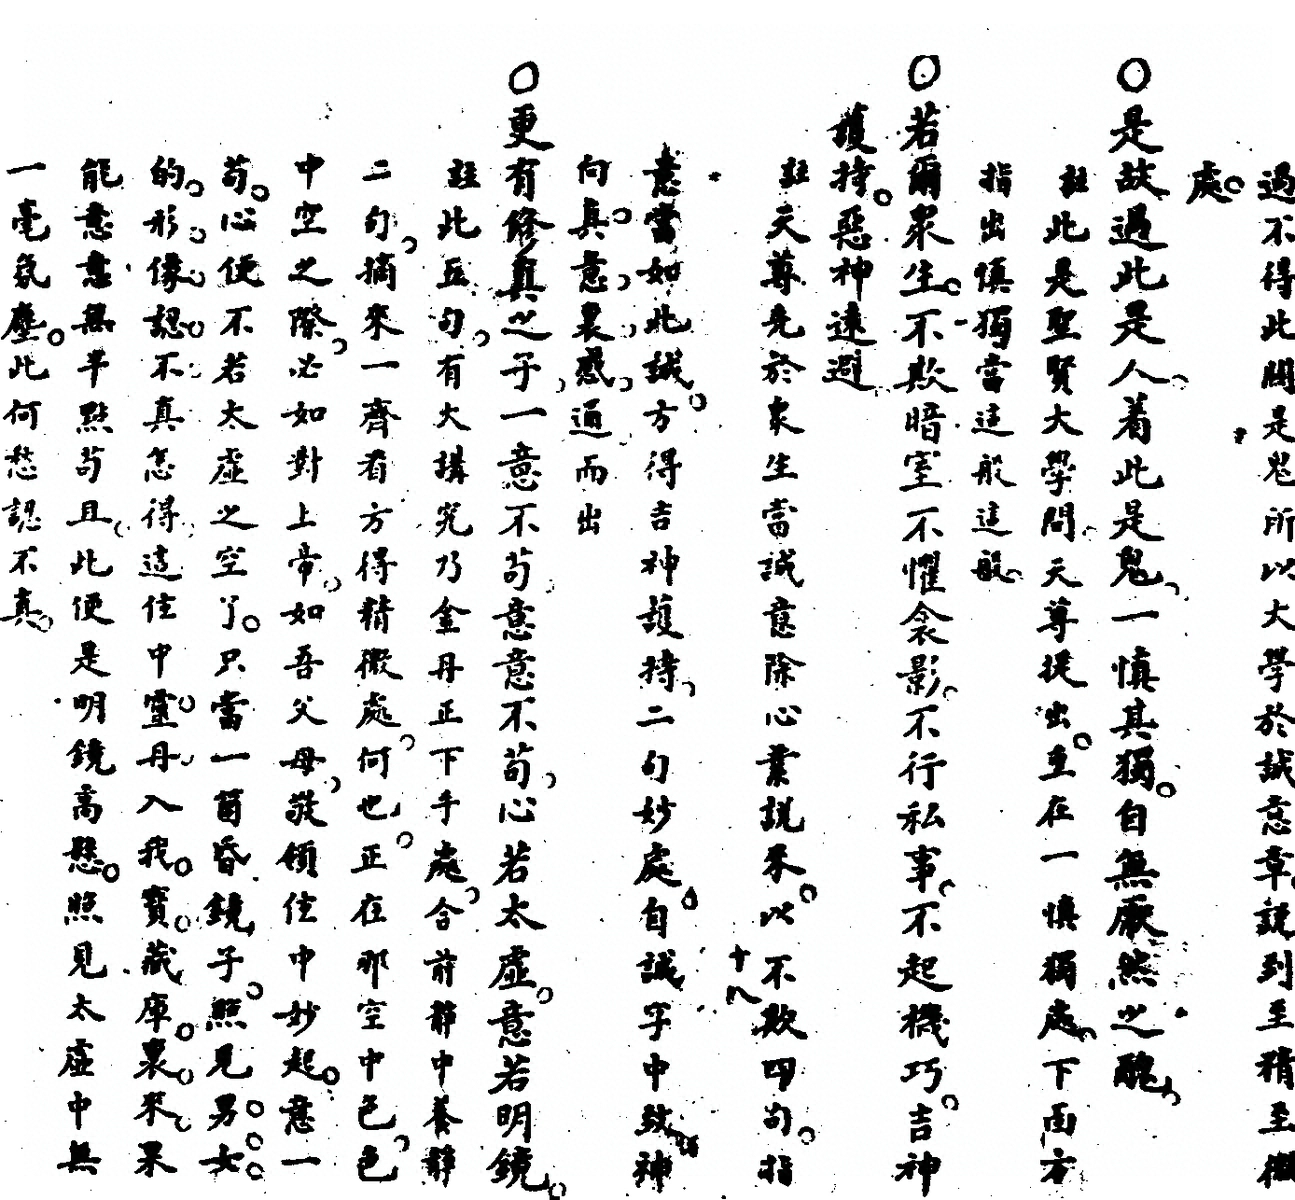 過不得此關是鬼所以大學於誠意章說到至精至微
處
○是故過此是人着此是鬼一慎其獨自無厭然之醜
註此是聖賢大學問天尊提出重在一慎獨處下面方
指出慎獨當這般這般
○若爾眾生不欺暗室不懼衾影不行私事不起機巧吉神
護持惡神遠避
註天尊先於眾生當誠意除心業說來以不欺四句指
十八
意當如此誠方得吉神護持二句妙處自誠字中致神
向真意裏感通而出
○更有修真之子一意不苟意意不苟心若太虛意若明鏡
註此五句有大講究乃金丹正下手處合前靜中養靜
二句摘來一齊看方得精微處何也正在那空中色色
中空之際必如對上帝如吾父母敬領住中妙起意一
苟心便不若太虛之空了只當一箇昏鏡子照見男女
的形像認不真怎得這住中靈丹入我寶藏庫裏來果
能意意無半點苟且此便是明鏡高懸照見太虛中無
一毫氛塵此何愁認不真